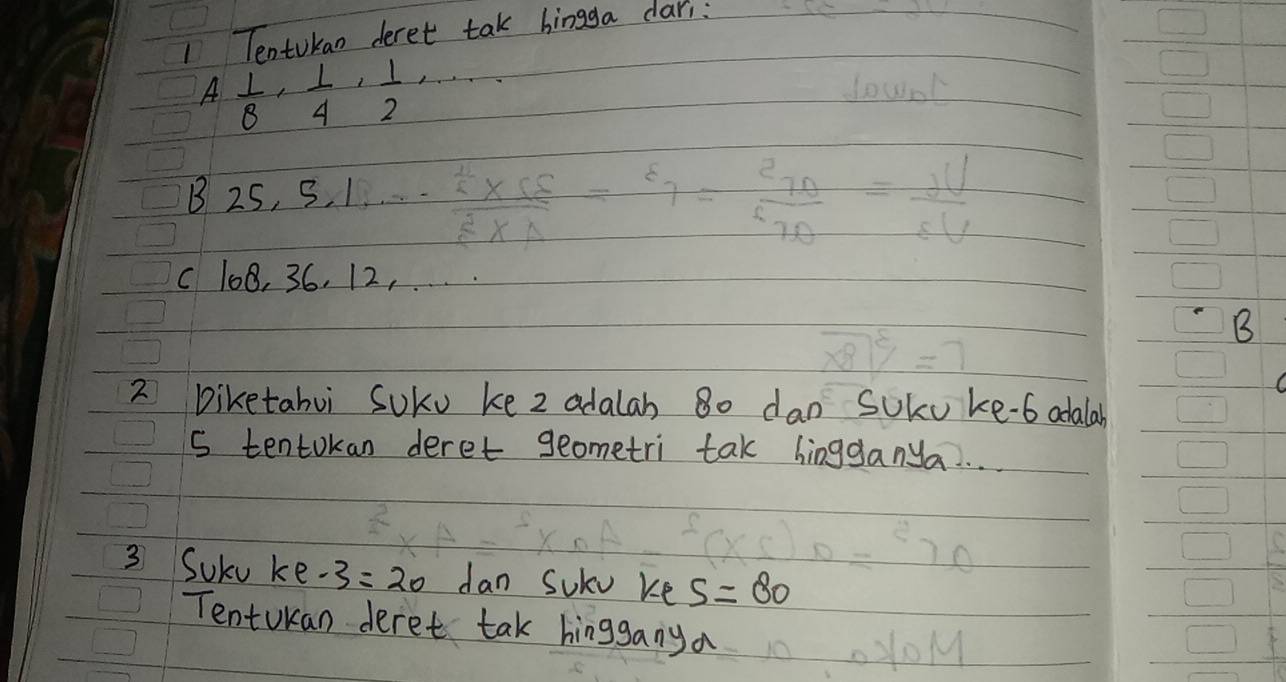 1 Tentukan deret tak hingga dari:
A 1/8, 1/4, 1/2, .....
B 25, 5, 1 ....
C 108, 36, 12, ....
B
2 Diketahui suku ke 2 adalah 80 dan suku ke-6 adalah
5 tentukan deret geometri tak hingganya...
3 Suku ke-3 = 20 dan suku ke 5 = 80
Tentukan deret tak hingganya